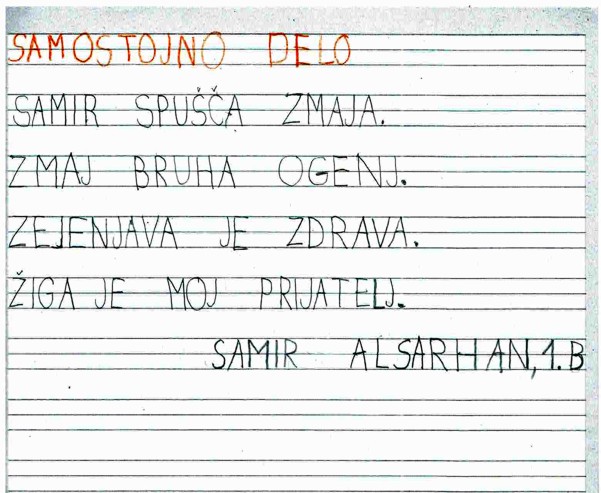 SAMOSTOJNO DELO
SAMIR SPUŠČA ZMAJA.
ZMAJ BRUHA OGENJ.
ZEJENJAVA JE ZDRAVA.
ŽIGA JE MOJ PRIJATELJ.
SAMIR ALSARHAN, 1. B